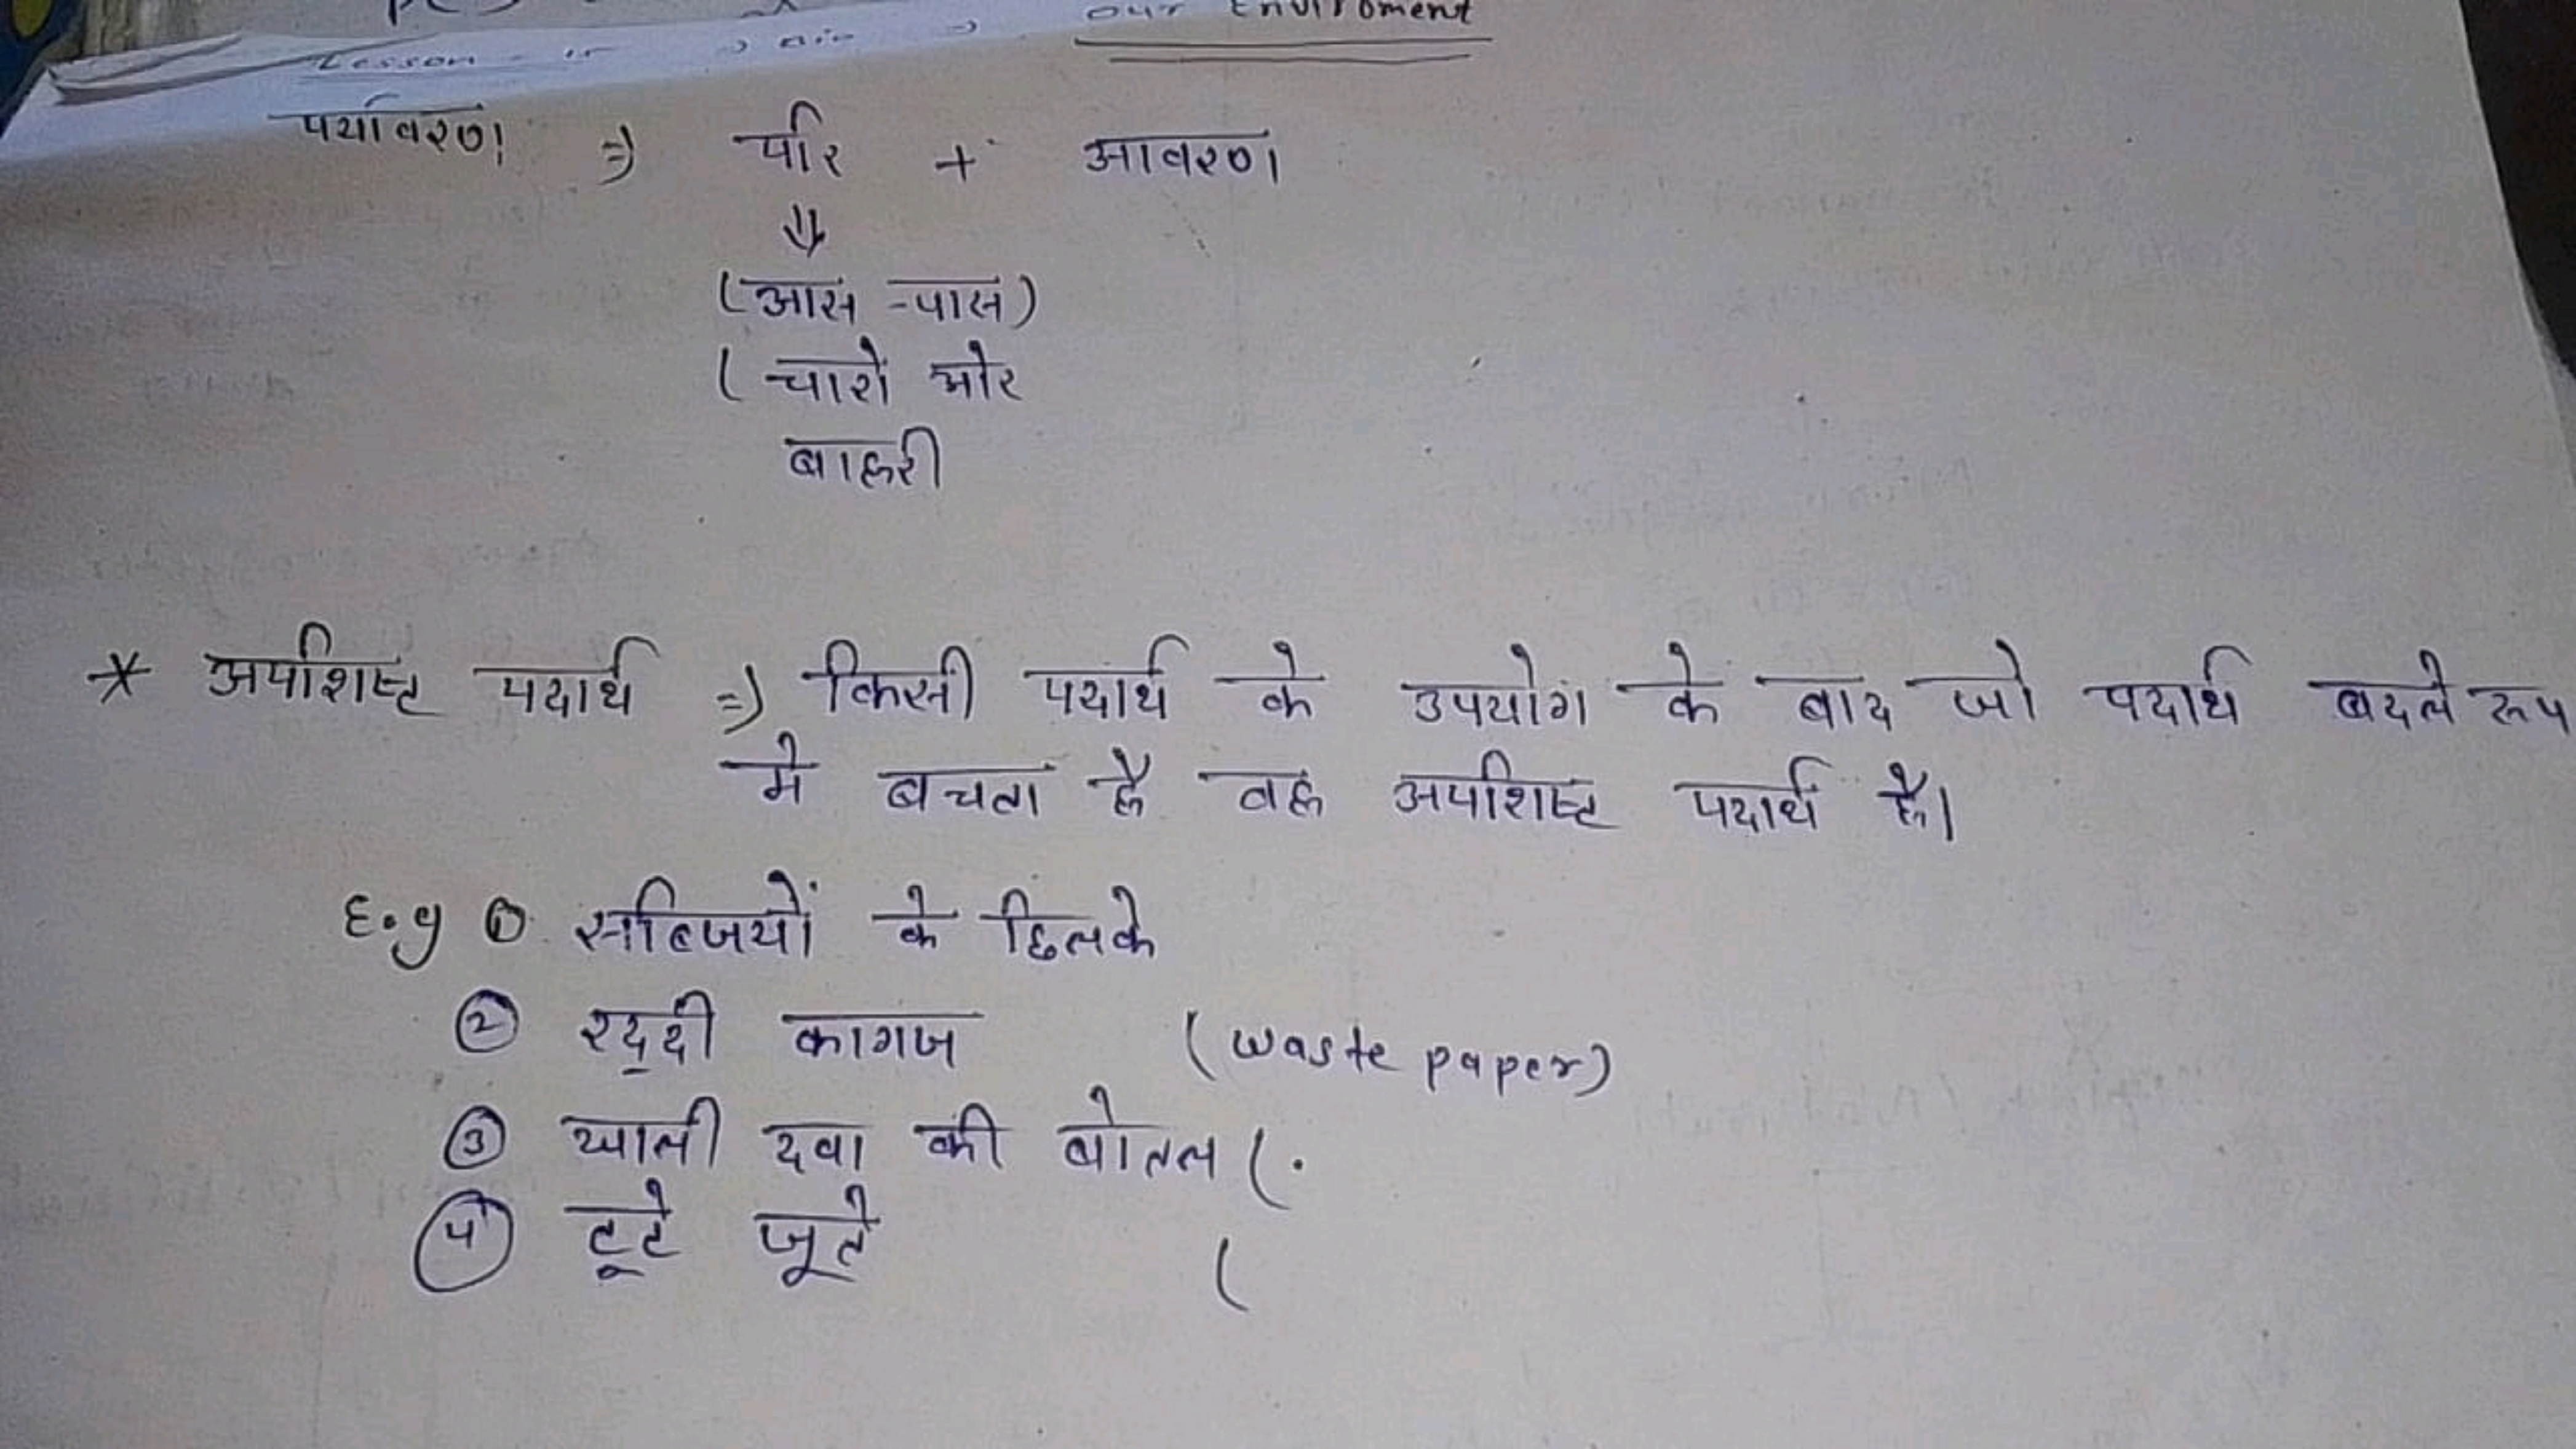 our Enviroment
Lesson
पर्यावरण ⇒ परि + आवरण
⇓
(आस-पास)
(चारों ओर
बाहरी
* अपशिष्ट पदार्थ ⇒ किसी पदार्थ के उपयोग के बाद जो पदार्थ बदले रूप
मे बचता है वह अपशिष्ट पदार्थ है।
E.g ① सब्जियों के छिलके
② रद्दी कागज (waste paper)
③ खाली दवा की बोतल (.
④ टूटे जूते (